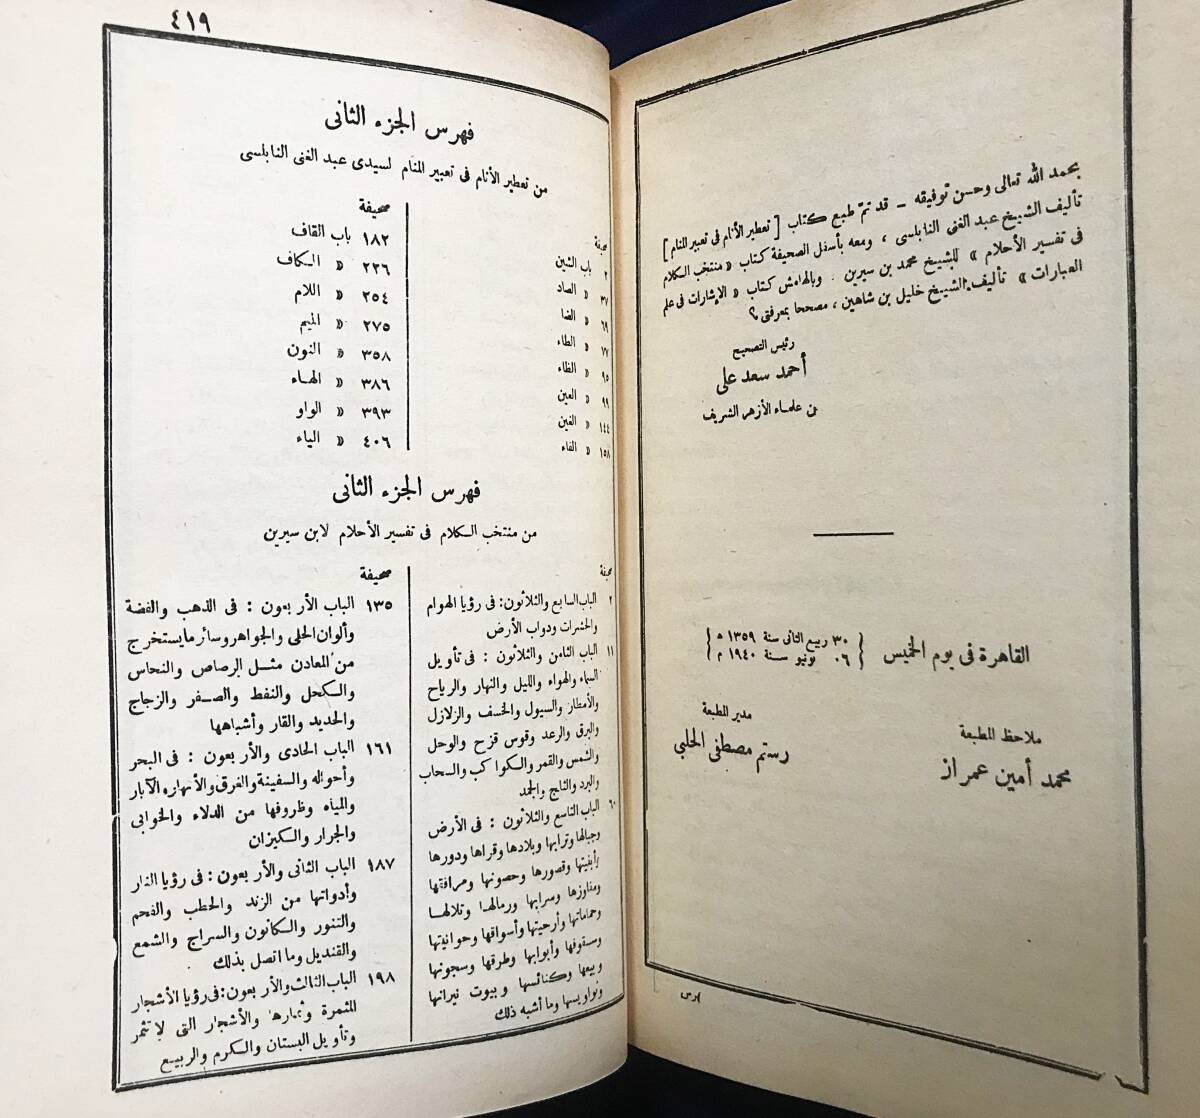 بحمد الله تعالى وحسن توفيقه – قد تمّ طبع كتاب [ تعطير الأنام فى تعبير المنام ]
تأليف الشيخ عبد الغنى النابلسى ، ومعه بأسفل الصحيفة كتاب « منتخب الكلام
فى تفسير الأحلام » للشيخ محمد بن سيرين . وبالهامش كتاب « الإشارات فى علم
العبارات » تأليف الشيخ خليل بن شاهين ، مصححا بمعرفتى ؟
رئيس التصحيح
أحمد سعد على
من علماء الأزهر الشريف
القاهرة فى يوم الخميس { ٣٠ ربيع الثانى سنة ١٣٥٩ هـ }
{ ٠٦ يونيو سنة ١٩٤٠ م }
ملاحظ المطبعة
محمد أمين عمراز
مدير المطبعة
رستم مصطفى الحلبى
٤١٩
فهرس الجزء الثانى
من تعطير الأنام فى تعبير المنام لسيدى عبد الغنى النابلسى
صحيفة
٢ باب الشين
٣٧ » الصاد
٦٩ » الضا
٧٧ » الطاء
٩٥ » الظاء
٩٩ » العين
١٤٤ » الغين
١٥٨ » الفاء
صحيفة
١٨٢ باب القاف
٢٢٦ » الكاف
٢٥٤ » اللام
٢٧٥ » الميم
٣٥٨ » النون
٣٨٦ » الهاء
٣٩٣ » الواو
٤٠٦ » الياء
فهرس الجزء الثانى
من منتخب الكلام فى تفسير الأحلام لابن سيرين
صحيفة
٢ الباب السابع والثلاثون: فى رؤيا الهوام
والحشرات ودواب الأرض
١١ الباب الثامن والثلاثون : فى تأويل
السماء والهواء والليل والنهار والرياح
والأمطار والسيول والخسف والزلازل
والبرق والرعد وقوس قزح والوحل
والشمس والقمر والكواكب والسحاب
والبرد والثلج والجمد
٦٠ الباب التاسع والثلاثون : فى الأرض
وجبالها وترابها وبلادها وقراها ودورها
وأبنيتها وقصورها وحصونها ومرافقها
ومفاوزها وسرابها ورمالها وتلالها
وحماماتها وأرحيتها وأسواقها وحوانيتها
وسقوفها وأبوابها وطرقها وسجونها
وبيعها وكنائسها وبيوت نيرانها
ونواويسها وما أشبه ذلك
صحيفة
١٣٥ الباب الأربعون : فى الذهب والفضة
وألوان الحلى والجواهر وسائر ما يستخرج
من المعادن مثل الرصاص والنحاس
والكحل والنفط والصفر والزجاج
والحديد والقار وأشباهها
١٦١ الباب الحادى والأربعون : فى البحر
وأحواله والسفينة والغرق والأنهار والآبار
والمياه وظروفها من الدلاء والخوابى
والجرار والكيزان
١٨٧ الباب الثانى والأربعون : فى رؤيا النار
وأدواتها من الزند والحطب والفحم
والتنور والكانون والسراج والشمع
والقنديل وما اتصل بذلك
١٩٨ الباب الثالث والأربعون: فى رؤيا الأشجار
المثمرة وثمارها والأشجار التى لا تثمر
وتأويل البستان والكرم والربيع